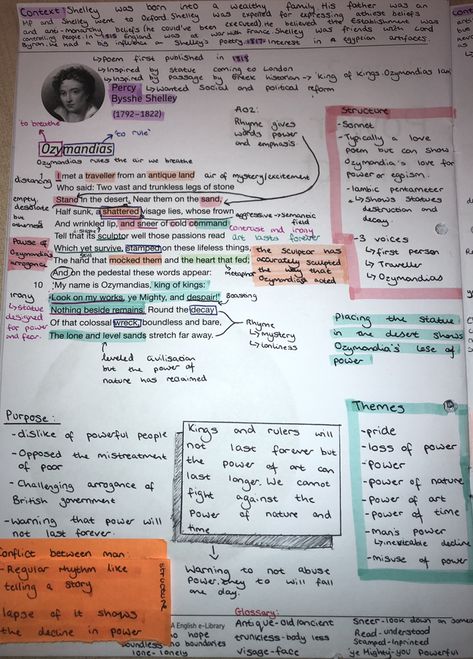 Context: Shelley was born into a wealthy family. His father was an
MP and Shelley went to Oxford. Shelley was expelled for expressing atheist beliefs
and anti-monarchy beliefs (he could've been executed). He believed the establishment was
controlling people. In 1818 England was at war with France. Shelley was friends with Lord
Byron. He had a big influence on Shelley's poetry. 1817: interest in egyptian artefacts.
↳ Poem first published in 1818
↳ Inspired by statue coming to London
↳ Inspired by passage by Greek historian → 'King of kings Ozymandias I am'
↳ Wanted social and political reform
Percy
Bysshe Shelley
(1792–1822)
'to breathe'
'to rule'
Ozymandias
Ozymandias rules the air we breathe
AO2:
Rhyme gives
words power
and emphasis.
distancing
I met a traveller from an antique land
air of mystery/excitement
Who said: Two vast and trunkless legs of stone
empty,
desolate
but
Stand in the desert. Near them on the sand,
Half sunk, a shattered visage lies, whose frown
aggressive semantic
field
And wrinkled lip, and sneer of cold command
contrast and irony
Tell that its sculptor well those passions read
art lasts forever
Pause of
Ozymandias
arrogance
Which yet survive, stamped on these lifeless things,
still
the sculptor has
accurately sculpted
the way that
Ozymandias acted
The hand that mocked them and the heart that fed;
metaphor
And on the pedestal these words appear:
10
'My name is Ozymandias, king of kings:
irony
↳ statue
designed
for power
and fear.
Look on my works, ye Mighty, and despair!'
Boasting
Nothing beside remains. Round the decay
Of that colossal wreck, boundless and bare,
The lone and level sands stretch far away.
Rhyme
↳ mystery
↳ lonliness
leveled civilisation
but the power of
nature has remained
Structure
- Sonnet
- Typically a love
poem but can show
Ozymandia's love for
power or egoism.
- Iambic pentameter
↳ shows statues
destruction and
decay.
- 3 voices
↳ first person
↳ Traveller
↳ Ozymandias
Placing the statue
in the desert shows
Ozymandia's lose of
power
Purpose:
- dislike of powerful people
- Opposed the mistreatment
of poor
- Challenging arrogance of
British government
- Warning that power will
not last forever.
Kings and rulers will
not last forever but
the power of art can
last longer. We cannot
fight against the
Power of nature and
time
Warning to not abuse
Power. they to will fall
one day.
Themes
- pride
- loss of power
- power
- power of nature
- power of art
- power of time
- man's power
↳ inevitable decline
- misuse of power
Conflict between man
- Regular rhythm like
telling a story
lapse of it shows
the decline in power
structure
Glossary:
A English e-Library
no hope
boundless - no boundaries
lone - lonely
Antique - old/ancient
trunkless - body less
visage - face
Sneer - look down on someone
Read - understood
Stamped - Inprinted
ye Mighty - you powerful